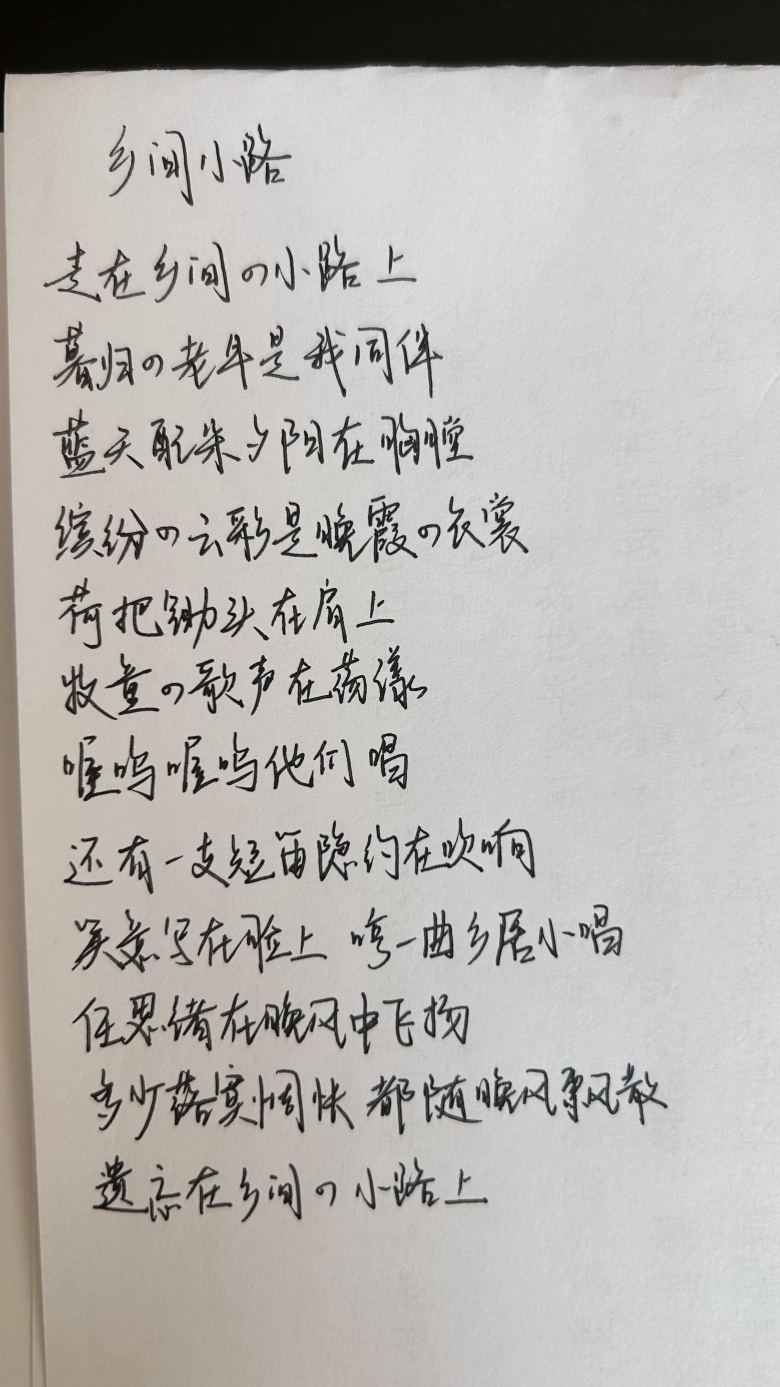 乡间小路
走在乡间の小路上
暮归の老牛是我同伴
蓝天配朵夕阳在胸膛
缤纷の云彩是晚霞の衣裳
荷把锄头在肩上
牧童の歌声在荡漾
喔呜喔呜他们唱
还有一支短笛隐约在吹响
笑意写在脸上 哼一曲乡居小唱
任思绪在晚风中飞扬
多少落寞惆怅 都随晚风飘散
遗忘在乡间の小路上